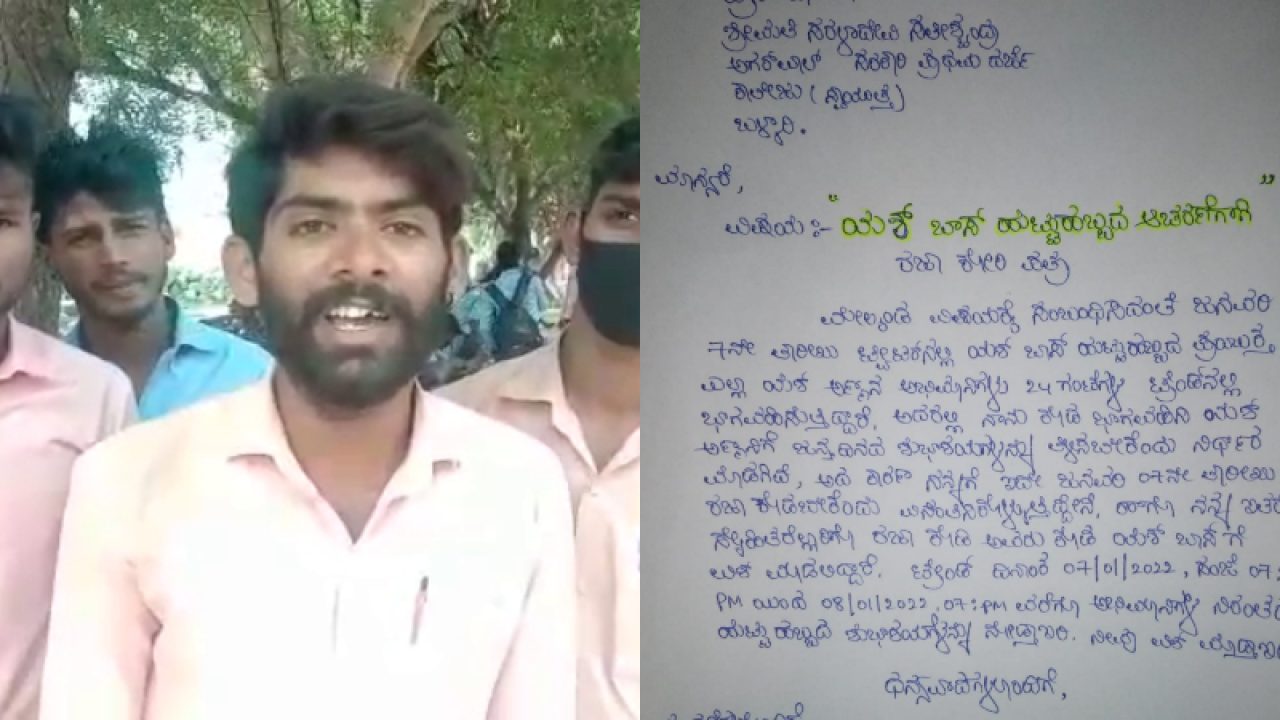 ಶ್ರೀಮತಿ ಸರಳಾದೇವಿ ಸತೀಶ್ಚಂದ್ರ
ಅಗರ್ವಾಲ್ ಸರಕಾರಿ ಪ್ರಥಮ ದರ್ಜೆ
ಕಾಲೇಜು (ಸ್ವಾಯತ್ತ)
ಬಳ್ಳಾರಿ.
ಮಾನ್ಯರೆ,
ವಿಷಯ :- "ಯಶ್ ಬಾಸ್ ಹುಟ್ಟುಹಬ್ಬದ ಆಚರಣೆಗಾಗಿ"
ರಜಾ ಕೋರಿ ಪತ್ರ
ಮೇಲ್ಕಂಡ ವಿಷಯಕ್ಕೆ ಸಂಬಂಧಿಸಿದಂತೆ ಜನವರಿ
7ನೇ ತಾರೀಖು ಟ್ವೀಟರ್‌ನಲ್ಲಿ ಯಶ್ ಬಾಸ್ ಹುಟ್ಟುಹಬ್ಬದ ಪ್ರಯುಕ್ತ
ಎಲ್ಲಾ ಯಶ್ ಅಣ್ಣನ ಅಭಿಮಾನಿಗಳು 24 ಗಂಟೆಗಳ ಟ್ರೆಂಡ್‌ನಲ್ಲಿ
ಭಾಗವಹಿಸುತ್ತಿದ್ದಾರೆ, ಅದರಲ್ಲಿ ನಾನು ಕೂಡ ಭಾಗವಹಿಸಿ ಯಶ್
ಅಣ್ಣನಿಗೆ ಜನ್ಮದಿನದ ಶುಭಾಶಯಗಳನ್ನು ತಿಳಿಸಬೇಕೆಂದು ನಿರ್ಧಾರ
ಮಾಡಗಿದೆ, ಅದ ಕಾರಣ ನನ್ನಗೆ ಇದೇ ಜನವರಿ 07ನೇ ತಾರೀಖು
ರಜಾ ಕೊಡಬೇಕೆಂದು ವಿನಂತಿಸಿಕೊಳ್ಳುತ್ತಿದ್ದೇನೆ, ಹಾಗೂ ನನ್ನ ಇತರ
ಸ್ನೇಹಿತರೆಲ್ಲರಿಗೂ ರಜಾ ಕೊಡಿ ಅವರು ಕೂಡ ಯಶ್ ಬಾಸ್ ಗೆ
ವಿಶ್ ಮಾಡಲಿದ್ದಾರೆ. ಟ್ರೆಂಡ್ ದಿನಾಂಕ 07/01/2022, ಸಂಜೆ 07:
PM ಯಿಂದ 08/01/2022, 07:PM ವರೆಗೂ ಅಭಿಮಾನಿಗಳ ನಿರಂತರ
ಹುಟ್ಟುಹಬ್ಬದ ಶುಭಾಶಯಗಳನ್ನು ನೋಡ್ತಾಇರಿ. ನೀವು ವಿಶ್ ಮಾಡ್ತಾಇರಿ
ಧನ್ಯವಾದಗಳೊಂದಿಗೆ,